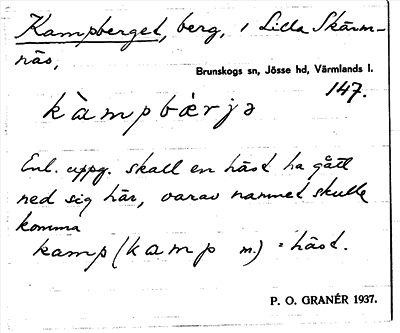 Kampberget, berg, i Lilla Skärm-
näs,
Brunskogs sn, Jösse hd, Värmlands l.
147.
kàmpbæ̀rjə
Enl. uppg. skall en häst ha gått
ned sig här, varav namnet skulle
komma
kamp (kamp m.) = häst.
P. O. GRANÉR 1937.